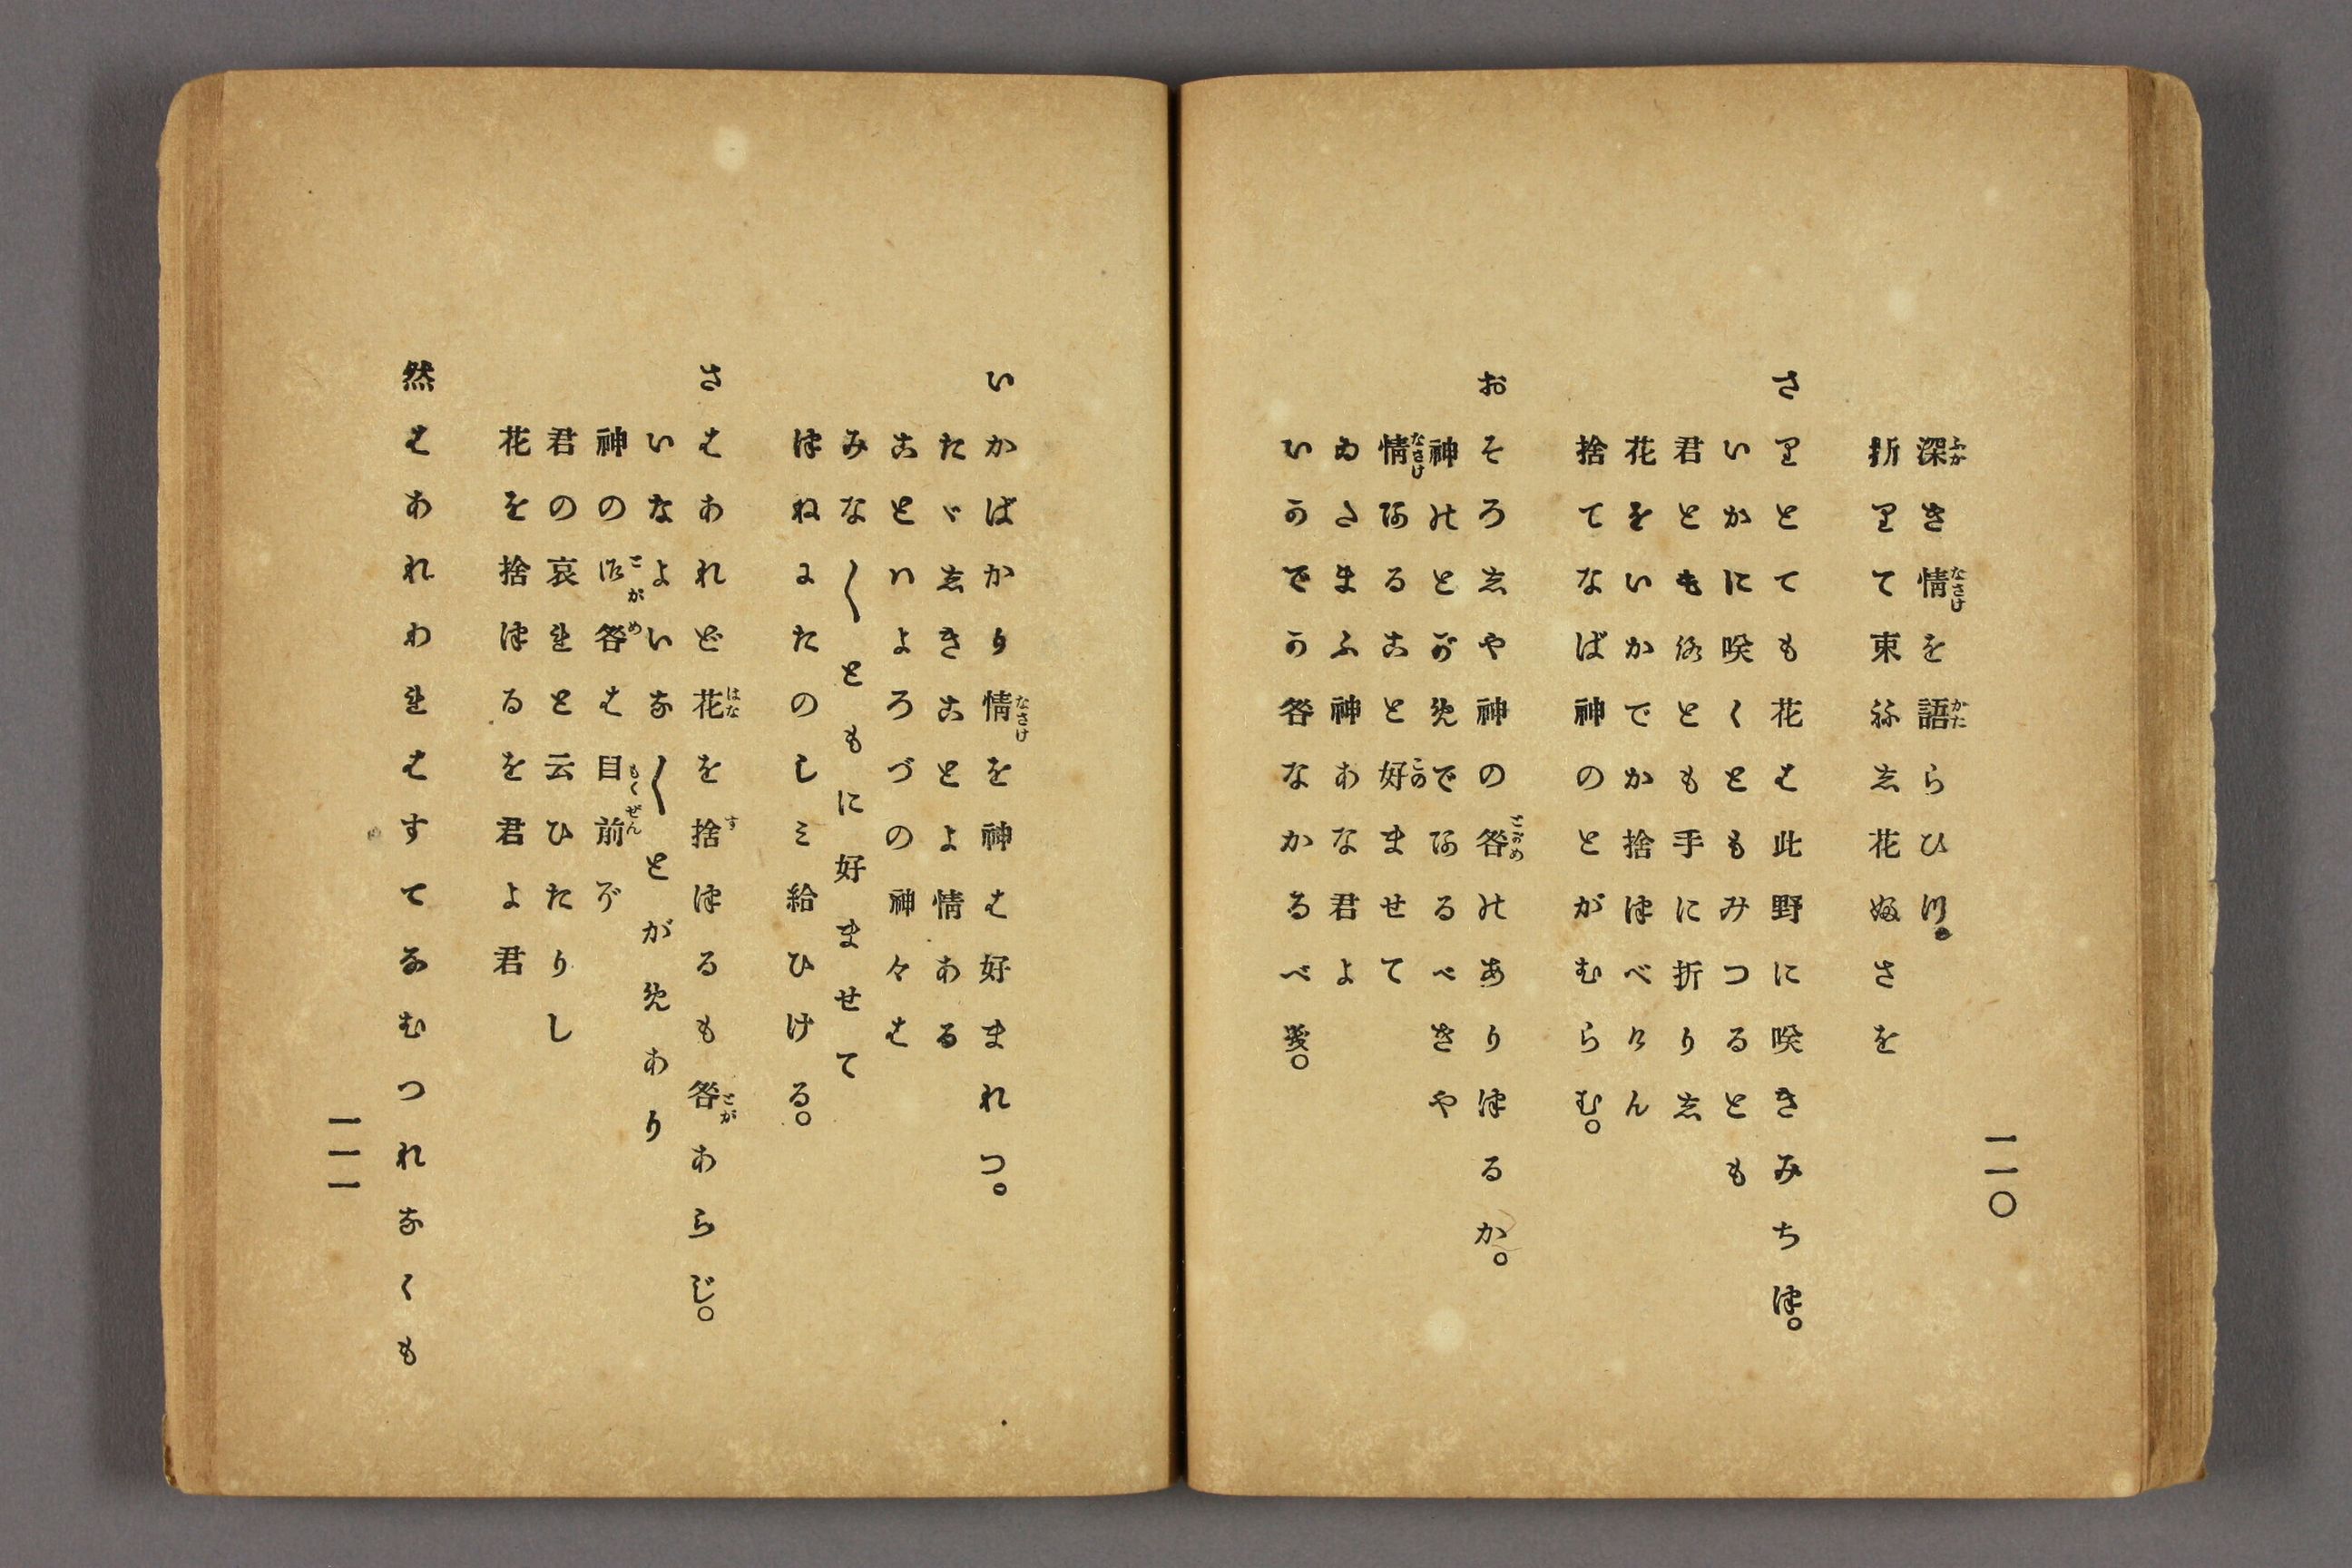 一一〇
深き情を語らひつ。
折りて束ねし花ぬさを
さりとても花は此野に咲きみちつ。
いかに咲くともみつるとも
君とも我とも手に折りし
花をいかでか捨つべけん
捨てなば神のとがむらむ。
おそろしや神の咎のありつるか。
神のとがめであるべきや
情あること好ませて
ゐたまふ神あな君よ
いかでか咎なかるべき。
いかばかり情を神は好まれつ。
たゞしきことよ情ある
こといよろづの神々は
みな〳〵ともに好ませて
つねにたのしみ給ひける。
さはあれど花を捨つるも咎あらじ。
いなよいな〳〵とがめあり
神の御咎は目前ぞ
君の哀れと云ひたりし
花を捨つるを君よ君
然はあれわれはすてなむつれなくも
一一一